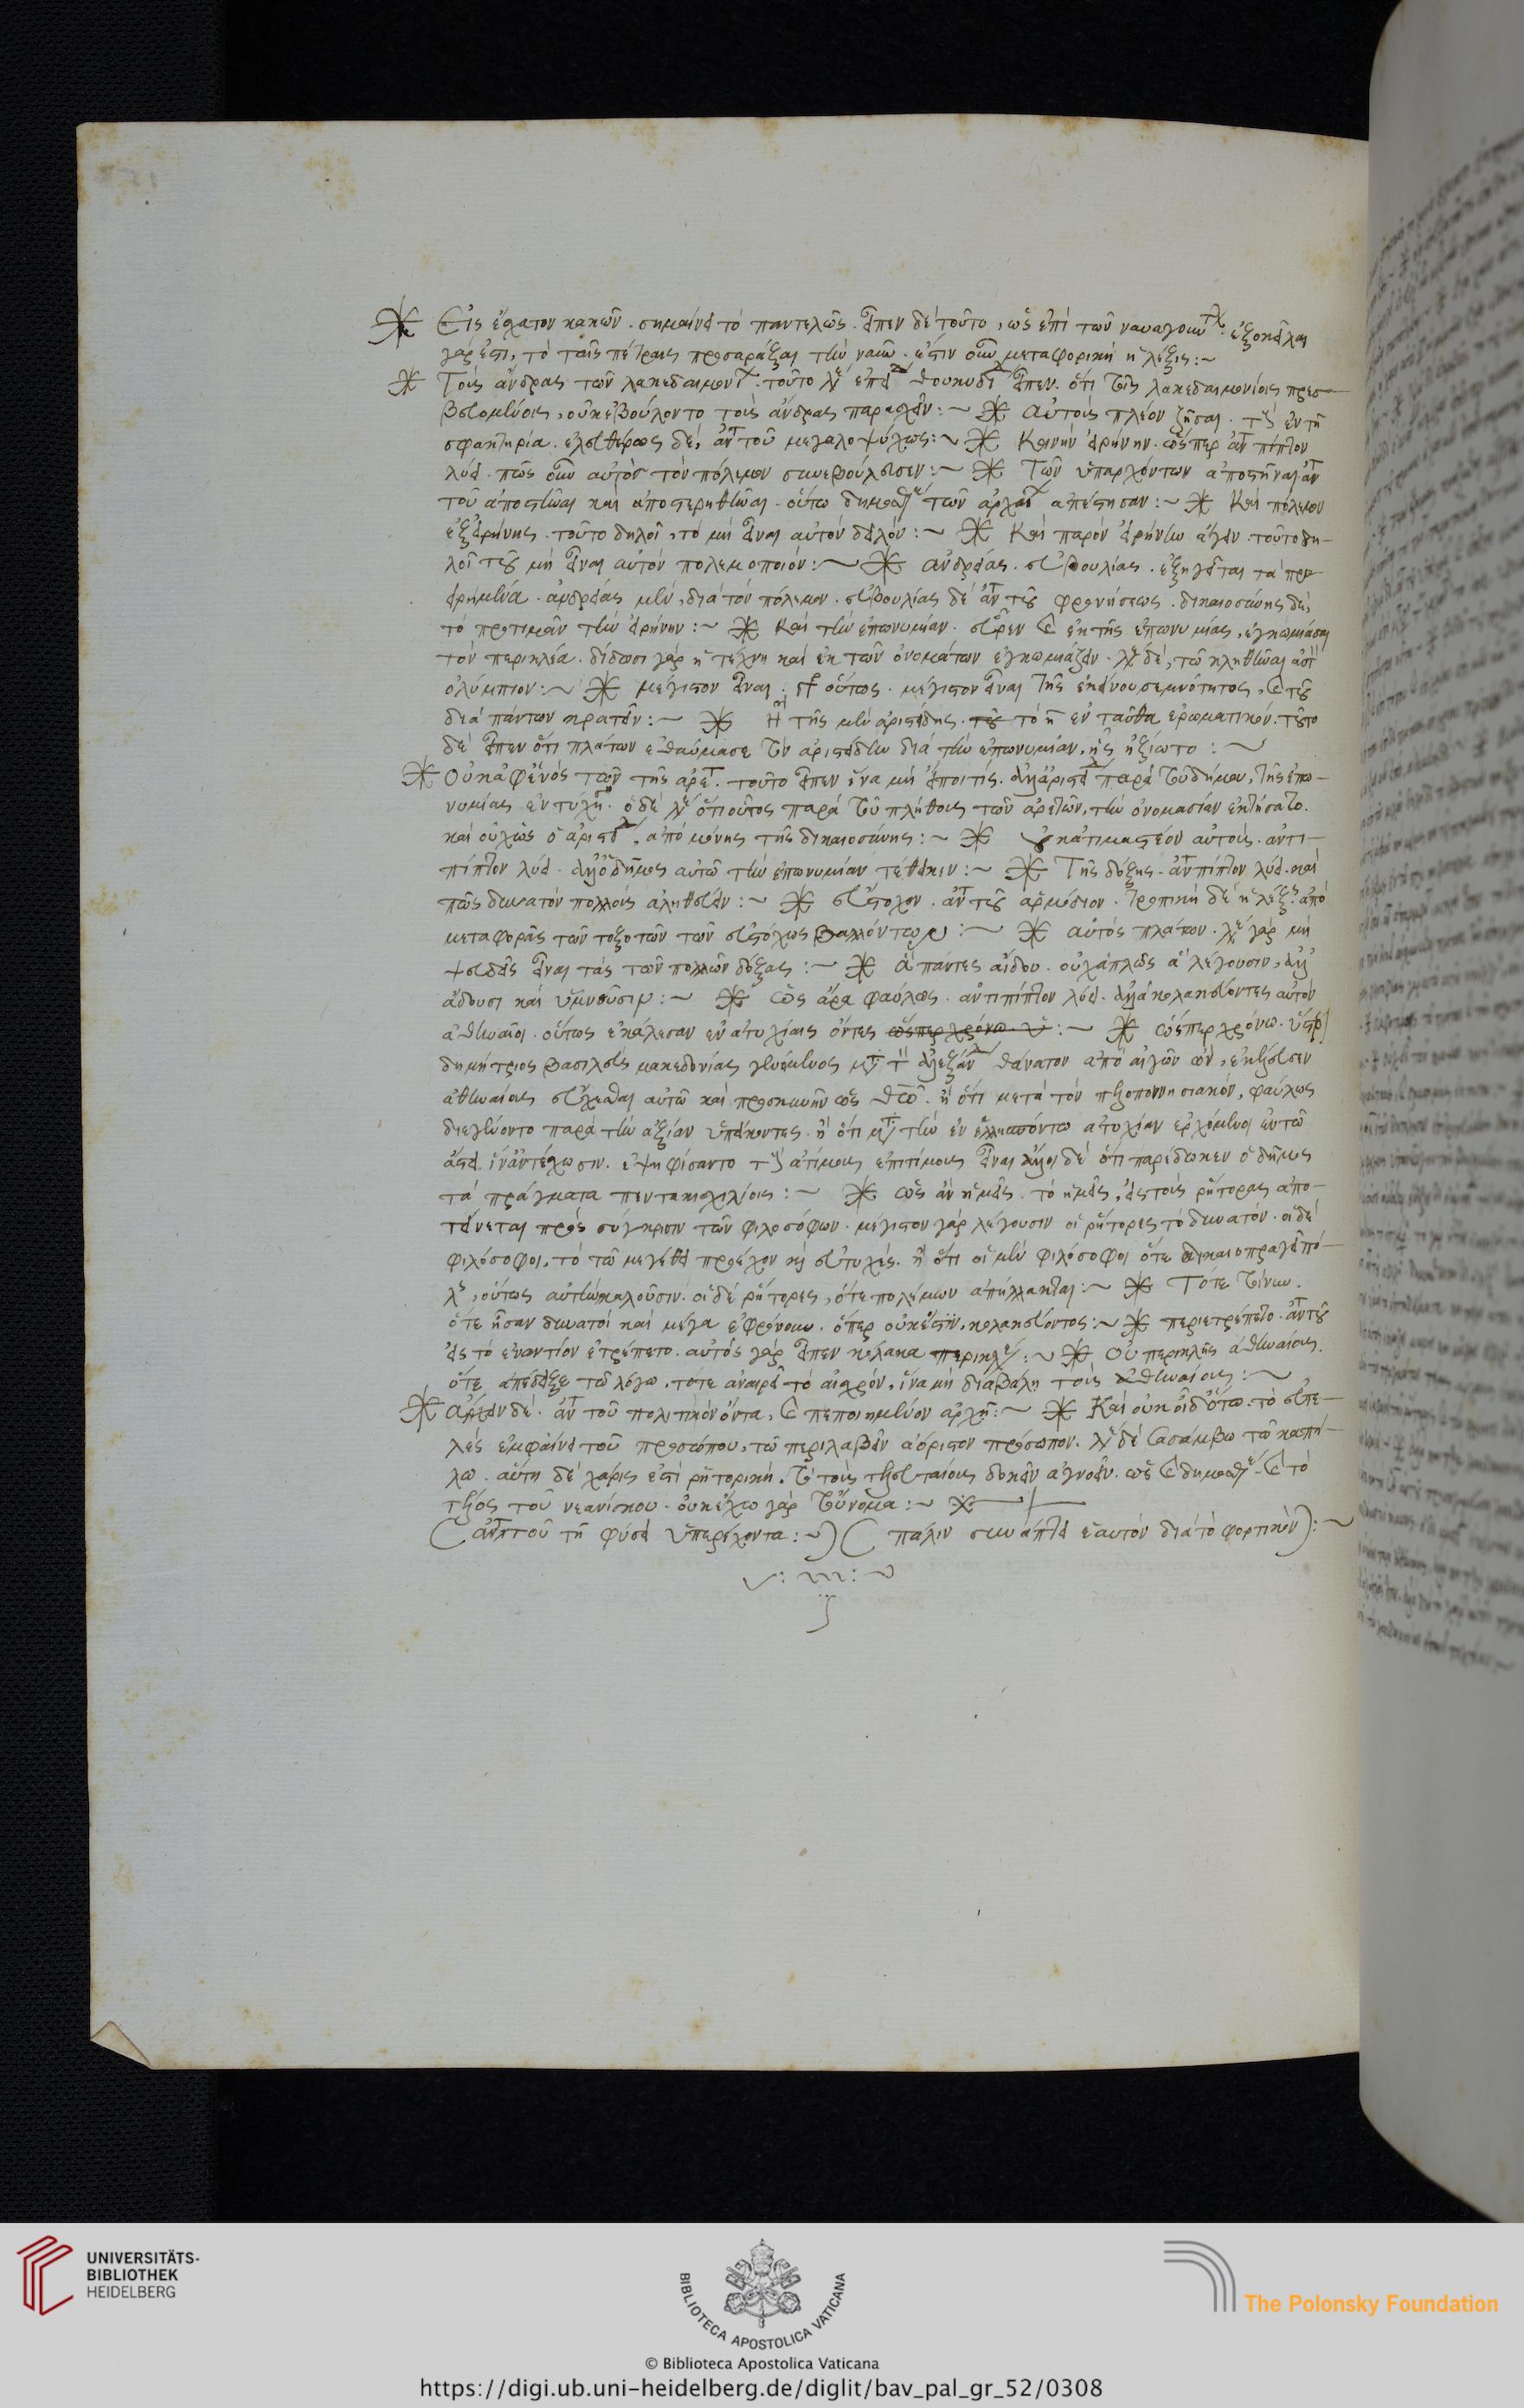 Εἰς ἔσχατον κακῶν . σημαίνει τὸ παντελῶς . εἶπεν δὲ τοῦτο , ὡς ἐπὶ τῶν ναυαγούντ . ἐξοκεῖλαι
γάρ ἐστι , τὸ ταῖς πέτραις προσαράξαι τὴν ναῦν . ἔστιν οὖν μεταφορικὴ ἡ λέξις :~
Τοὺς ἄνδρας τῶν λακεδαιμον . τοῦτο λέγ ἐπεὶ θουκυδί εἶπεν . ὅτι τοῖς λακεδαιμονίοις πρεσ-
βευομένοις , οὐκ ἐβούλοντο τοὺς ἄνδρας παρασχεῖν :~ αὐτοὺς πλέον ζητῆσαι . τοὺς ἐν τῇ
σφακτηρία . ἐλευθέρως δὲ , ἀντ τοῦ μεγαλοψύχως :~ Κοινὴν εἰρήνην . ὥσπερ ἀντιπίπτον
λύει . πῶς οὖν αὐτὸς τὸν πόλεμον συνεβούλευσεν :~ Τῶν ὑπαρχόντων ἀποστῆναι ἀντ
τοῦ ἀποστῆναι καὶ ἀποστερηθῆναι . οὕτω δημοσθέ τῶν ἀρχαί ἀπέστησαν :~ Καὶ πόλεμον
ἐξ εἰρήνης . τοῦτο δηλοῖ , τὸ μὴ εἶναι αὐτὸν δειλόν :~ Καὶ παρὸν εἰρήνην ἄγειν . τοῦτο δη-
λοῖ τοῦ μὴ εἶναι αὐτὸν πολεμοποιόν :~ ἀνδρείας . εὐβουλίας . ἐξηγεῖται τὰ προ
ειρημένα . ἀνδρείας μὲν , διὰ τὸν πόλεμον . εὐβουλίας δὲ ἀντ τοῦ φρονήσεως . δικαιοσύνης δὲ ,
τὸ προτιμᾶν τὴν εἰρήνην :~ Καὶ τὴν ἐπωνυμίαν . εὗρεν καὶ ἐκ τῆς ἐπωνυμίας , ἐγκωμιάσαι
τὸν περικλέα . δίδωσι γὰρ ἡ τέχνη καὶ ἐκ τῶν ὀνομάτων ἐγκωμιάζειν . λέγ δὲ , τῶ κληθῆναι αὐτὸ
ὀλύμπιον :~ μέγιστον εἶναι . οὕτως . μέγιστον εἶναι τῆς ἐκείνου σεμνότητος , καὶ τοῦ
διὰ πάντων κρατεῖν :~ Ἢ τῆς μὲν ἀριστείδης . τοῦ τὸ ἢ ἐνταῦθα ἐρωματικόν . τοῦτο
δὲ εἶπεν ὅτι πλάτων ἐθαύμασε τὸν ἀριστείδην διὰ τὴν ἐπωνυμίαν , ἧς ἠξίωτο :~
Οὐκ ἀφ' ἑνὸς τῶν τῆς ἀρετ . τοῦτο εἶπεν ἵνα μὴ εἴποι τις . ἀλλ' ἀριστεί παρὰ τοῦ δήμου , τῆς ἐπω-
νυμίας ἐντύχη . ὁ δὲ λέγ ὅτι οὗτος παρὰ τοῦ πλήθους τῶν ἀρετῶν , τὴν ὀνομασίαν ἐκτήσατο .
καὶ οὐχ ὡς ὁ ἀριστεί , ἀπὸ μόνης τῆς δικαιοσύνης :~ οὐκ ἀτιμαστέον αὐτούς . ἀντι-
πίπτον λύει . ἀλλ' ὁ δῆμος αὐτῶ τὴν ἐπωνυμίαν τέθεικεν :~ Τῆς δόξης . ἀντιπίπτον λύει . καὶ
πῶς δυνατὸν πολλοὺς ἀληθεύειν :~ εὔστοχον . ἀντ τοῦ ἁρμόδιον . τροπικὴ δὲ ἡ λέξις . ἀπὸ
μεταφορᾶς τῶν τοξοτῶν τῶν εὐστόχως βαλλόντων :~ αὐτὸς πλάτων . λέγ γὰρ μὴ
ψευδεῖς εἶναι τὰς τῶν πολλῶν δόξας :~ ἃ πάντες ἄδου . οὐχ ἁπλῶς ἃ λέγουσιν , ἀλλ'
ἄδουσι καὶ ὑμνοῦσιν :~ Ὡς ἄρα φαύλως . ἀντιπίπτον λύει . ἀλλὰ κολακεύοντες αὐτὸν
ἀθηναῖοι . οὕτως ἐκάλεσαν ἐν ἀτυχίαις ὄντες ὥσπερ χρόνω ὑ :~ ὥσπερ χρόνω . ὕστερ
δημήτριος βασιλεὺς μακεδονίας γενόμενος μετὰ τὸ ἀλεξάν θάνατον ἀπὸ αἰγῶν ὢν , ἐκέλευσεν
ἀθηναίοις εὔχεσθαι αὐτῶ καὶ προσκυνεῖν ὡς θεῶ . ἢ ὅτι μετὰ τὸν πελοποννησιακὸν , φαύλως
διεγένοντο παρὰ τὴν ἀξίαν ὑπείκοντες . ἢ ὅτι μετὰ τὴν ἐν ἑλλησπόντω ἀτυχίαν ἐρχόμενοι ἐν τῶ
ἄστει ἵν' ἀντέχωσιν . ἐψηφίσαντο τοὺς ἀτίμους ἐπιτίμους εἶναι ἄλλοι δὲ ὅτι παρέδωκεν ὁ δῆμος
τὰ πράγματα πεντακισχιλίοις :~ ὡς ἂν ἡμεῖς . τὸ ἡμεῖς , εἰς τοὺς ῥήτορας ἀπο-
τείνεται πρὸς σύγκρισιν τῶν φιλοσόφων . μέγιστον γὰρ λέγουσιν οἱ ῥήτορες τὸ δυνατόν . οἱ δὲ
φιλόσοφοι , τὸ τῶ μεγέθει προέχον καὶ εὐτυχές . ἢ ὅτι οἱ μὲν φιλόσοφοι ὅτε δικαιοπραγεῖ πό-
λις , οὕτως αὐτὴν καλοῦσιν . οἱ δὲ ῥήτορες , ὅτε πολέμων ἀπήλλακται :~ Τότε τοίνυν .
ὅτε ἦσαν δυνατοὶ καὶ μέγα ἐφρόνουν . ὅπερ οὐκ ἔστιν , κολακεύοντος :~ περιετρέπετο . ἀντ τοῦ
εἰς τὸ ἐναντίον ἐτρέπετο . αὐτὸς γὰρ εἶπεν κόλακα περικλέ :~ Οὐ περικλῆς ἀθηναίους .
ὅτε ἀπέδειξε τῶ λόγω , τότε ἀναιρεῖ τὸ αἰσχρόν , ἵνα μὴ διαβάλη τοὺς ἀθηναίους :~
ἄρχειν δὲ . ἀντ τοῦ πολιτικὸν ὄντα , καὶ πεποιημένον ἀρχῆ :~ Καὶ οὐκ οἶδ' ὅτω . τὸ εὐτε-
λὲς ἐμφαίνει τοῦ προσώπου , τῶ περιλαβεῖν ἀόριστον πρόσωπον . λέγ δὲ σαράμβω τῶ καπή-
λω . αὕτη δὲ χάρις ἐστὶ ῥητορική . τὸ τοὺς τελευταίους δοκεῖν ἀγνοεῖν . ὡς καὶ δημοσθέ . καὶ τὸ
τέλος τοῦ νεανίσκου . οὐκ ἔχω γὰρ τοὔνομα :~
( ἀντ τοῦ τῆ φύσει ὑπερέχοντα :~) ( πάλιν συνάπτει ἑαυτὸν διὰ τὸ φορτικόν ) :~
UNIVERSITÄTS-
BIBLIOTHEK
HEIDELBERG
BIBLIOTECA APOSTOLICA VATICANA
The Polonsky Foundation
© Biblioteca Apostolica Vaticana
https://digi.ub.uni-heidelberg.de/diglit/bav_pal_gr_52/0308